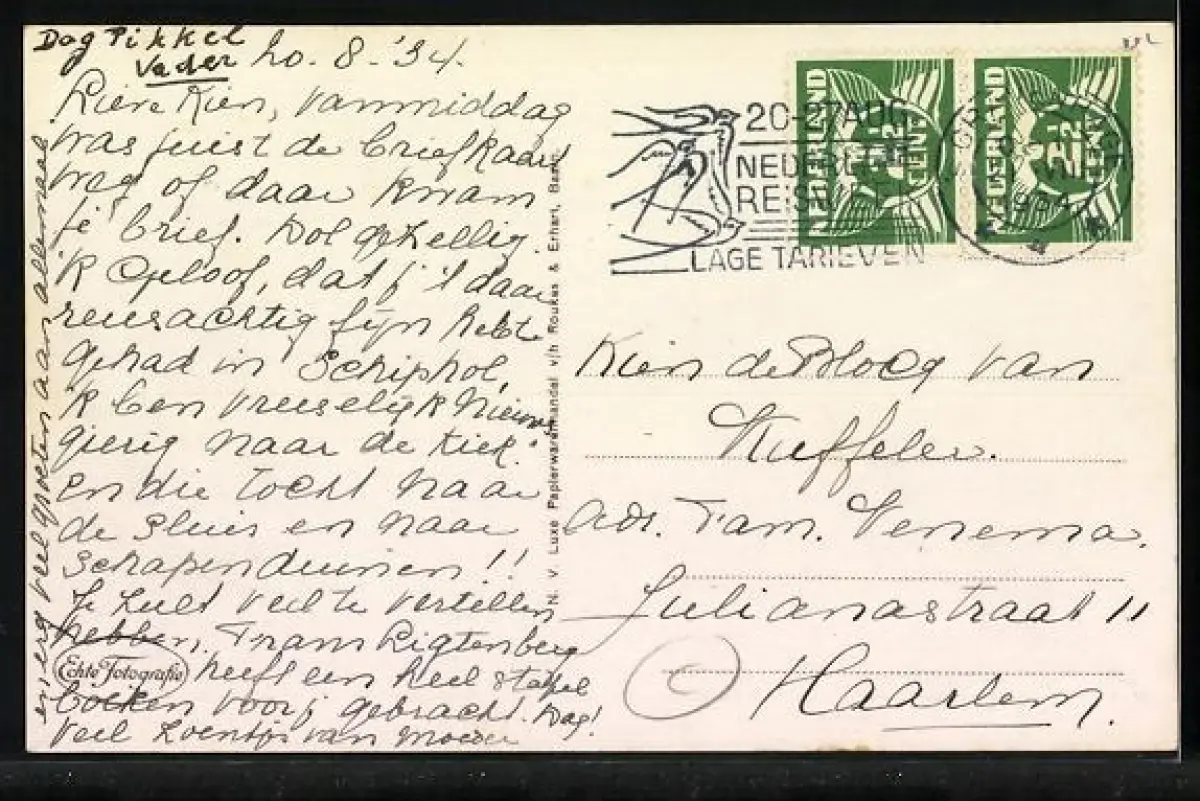 Dag Pikkel
Vader
20. 8. '34.
Lieve Kien, vanmiddag
was juist de briefkaart
weg of daar kwam
je brief. Dol gezellig.
'k Geloof, dat j 't daar
reusachtig fijn hebt
gehad in Schiphol,
'k ben vreeselijk nieuws
gierig naar de kiek.
En die tocht naar
de sluis en naar
Schapenduinen!!
Je zult veel te vertellen
hebben. Frans Ligtenberg
heeft een heel stapel
boeken voor j gebracht. Dag!
Veel zoentjes van Moeder
en erg veel groeten aan allemaal
Echte Fotografie
N. v. Luxe Papierwarenhandel v/h Roukes & Erhart, Baarn
20-27 AUG
NEDERL
REIS
LAGE TARIEVEN
1934
NEDERLAND
2½
CENT
NEDERLAND
2½
CENT
Kien de Blocq van
Kuffeler.
adr. Fam. Venema.
Julianastraat 11
Haarlem.